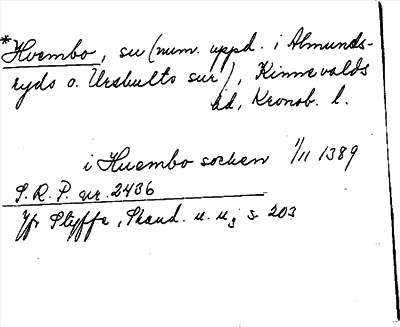 *Hvembo, su (num. uppd. i Almunds-
ryds o. Urshults sur), Kinnevalds
hd, Kronob. l.
i Huembo socken 1/11 1389
S. R. P. nr. 2436
Jfr Styffe, Skand. u. u; s 203